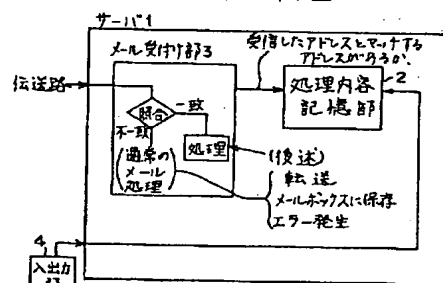 サーバ1
メール受付け部3
受信したアドレスとマッチする
アドレスがあるか、
伝送路
照合
一致
不一致
処理
(通常の
メール
処理)
処理内容
記憶部
2
(後述)
転送
メールボックスに保存
エラー発生
4
入出力